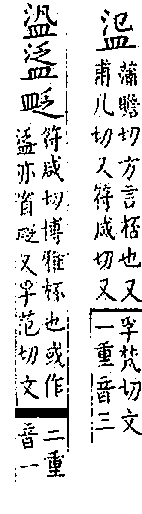 蒲瞻切方言桮也又
甫凡切又符咸切又
孚梵切文
一重音三
符咸切博雅杯也或作
亦省又孚范切文
二重
音一